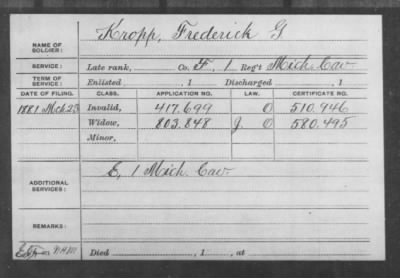 NAME OF SOLDIER: Kropp, Frederick G.
SERVICE: Late rank, Co. F, 1 Reg't Mich. Cav.
TERM OF SERVICE: Enlisted , 1 Discharged , 1
DATE OF FILING. CLASS. APPLICATION NO. LAW. CERTIFICATE NO.
1881 Mch 23 Invalid, 417.699 O 510.946
Widow, 803.848 J. O 580.495
Minor,
E, 1 Mich. Cav.
ADDITIONAL SERVICES:
REMARKS:
Died , 1 , at